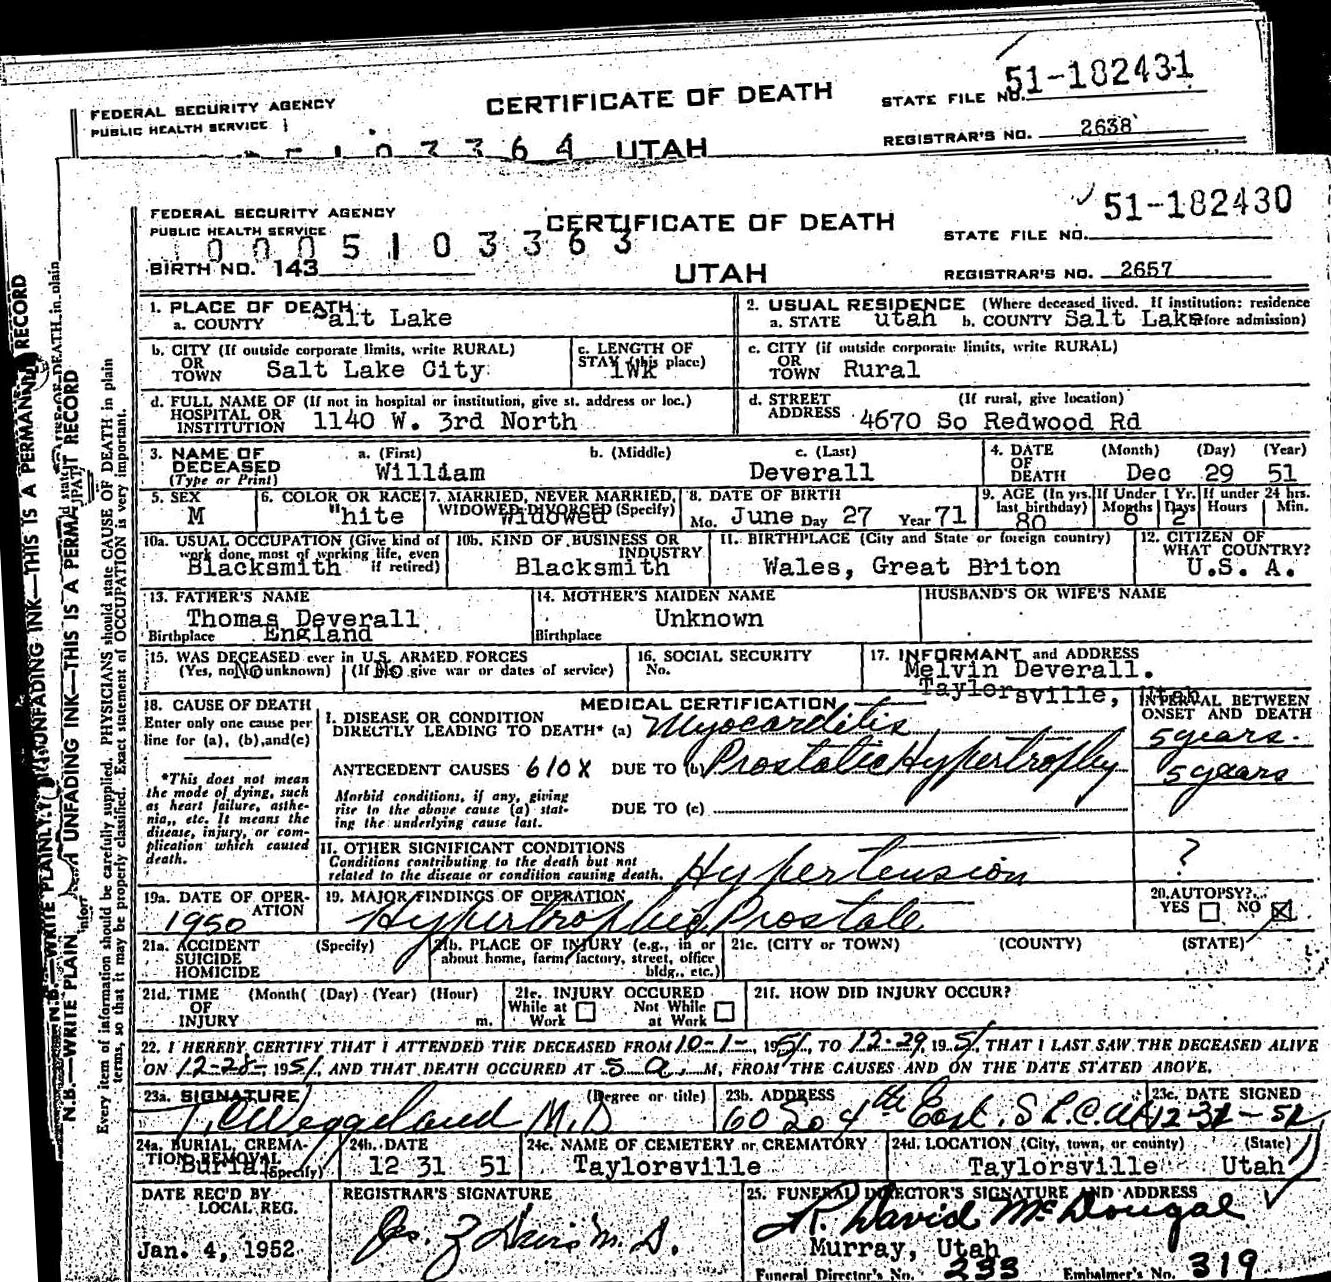 FEDERAL SECURITY AGENCY
PUBLIC HEALTH SERVICE
CERTIFICATE OF DEATH
UTAH
STATE FILE NO. 51-182431
REGISTRAR'S NO. 2638
FEDERAL SECURITY AGENCY
PUBLIC HEALTH SERVICE
CERTIFICATE OF DEATH
51-182430
STATE FILE NO.
0005103363
BIRTH NO. 143
UTAH
REGISTRAR'S NO. 2657
1. PLACE OF DEATH
a. COUNTY alt Lake
2. USUAL RESIDENCE (Where deceased lived. If institution: residence before admission)
a. STATE utah b. COUNTY Salt Lake
b. CITY (If outside corporate limits, write RURAL)
OR TOWN Salt Lake City
c. LENGTH OF STAY (this place)
1wk
c. CITY (if outside corporate limits, write RURAL)
OR TOWN Rural
d. FULL NAME OF (If not in hospital or institution, give st. address or loc.)
HOSPITAL OR INSTITUTION 1140 W. 3rd North
d. STREET ADDRESS (If rural, give location)
4670 So Redwood Rd
3. NAME OF DECEASED (Type or Print)
a. (First) b. (Middle) c. (Last)
William Deverall
4. DATE OF DEATH (Month) (Day) (Year)
Dec 29 51
5. SEX
M
6. COLOR OR RACE
hite
7. MARRIED, NEVER MARRIED, WIDOWED, DIVORCED (Specify)
Widowed
8. DATE OF BIRTH
Mo. June Day 27 Year 71
9. AGE (In yrs. last birthday) If Under 1 Yr. If under 24 hrs.
Months Days Hours Min.
80 6 2
10a. USUAL OCCUPATION (Give kind of work done, most of working life, even if retired)
Blacksmith
10b. KIND OF BUSINESS OR INDUSTRY
Blacksmith
11. BIRTHPLACE (City and State or foreign country)
Wales, Great Briton
12. CITIZEN OF WHAT COUNTRY?
U.S. A.
13. FATHER'S NAME
Thomas Deverall
Birthplace England
14. MOTHER'S MAIDEN NAME
Unknown
Birthplace
HUSBAND'S OR WIFE'S NAME
15. WAS DECEASED ever in U.S. ARMED FORCES
(Yes, no, unknown) No (If so give war or dates of service) No
16. SOCIAL SECURITY No.
17. INFORMANT and ADDRESS
Melvin Deverall.
Taylorsville, Utah
18. CAUSE OF DEATH
Enter only one cause per line for (a), (b), and (c)
*This does not mean the mode of dying, such as heart failure, asthenia, etc. It means the disease, injury, or complication which caused death.
MEDICAL CERTIFICATION
INTERVAL BETWEEN ONSET AND DEATH
I. DISEASE OR CONDITION DIRECTLY LEADING TO DEATH* (a) Myocarditis
5 years.
ANTECEDENT CAUSES 610X DUE TO (b) Prostatic Hypertrophy
5 years
Morbid conditions, if any, giving rise to the above cause (a) stating the underlying cause last.
DUE TO (c)
II. OTHER SIGNIFICANT CONDITIONS
Conditions contributing to the death but not related to the disease or condition causing death.
Hypertension
?
19a. DATE OF OPERATION
1950
19. MAJOR FINDINGS OF OPERATION
Hypertrophied Prostate
20. AUTOPSY?
YES NO
21a. ACCIDENT SUICIDE HOMICIDE (Specify)
21b. PLACE OF INJURY (e.g., in or about home, farm, factory, street, office bldg., etc.)
21c. (CITY or TOWN) (COUNTY) (STATE)
21d. TIME OF INJURY (Month) (Day) (Year) (Hour) m.
21e. INJURY OCCURED
While at Work Not While at Work
21f. HOW DID INJURY OCCUR?
22. I HEREBY CERTIFY THAT I ATTENDED THE DECEASED FROM 10-1-, 1951, TO 12-29, 1951, THAT I LAST SAW THE DECEASED ALIVE
ON 12-28-1951, AND THAT DEATH OCCURED AT 5 a. M, FROM THE CAUSES AND ON THE DATE STATED ABOVE.
23a. SIGNATURE (Degree or title)
Weggeland M.D
23b. ADDRESS
60 So 4th East. S L C
23c. DATE SIGNED
12-31-51
24a. BURIAL, CREMATION REMOVAL (Specify)
Burial
24b. DATE
12 31 51
24c. NAME OF CEMETERY or CREMATORY
Taylorsville
24d. LOCATION (City, town, or county) (State)
Taylorsville Utah
DATE REC'D BY LOCAL REG.
Jan. 4, 1952
REGISTRAR'S SIGNATURE
25. FUNERAL DIRECTOR'S SIGNATURE AND ADDRESS
R. David McDougal
Murray, Utah
Funeral Director's No. 233 Embalmer's No. 319
N.B.—WRITE PLAINLY UNFADING INK—THIS IS A PERMANENT RECORD
Every item of information should be carefully supplied. PHYSICIANS should state CAUSE OF DEATH in plain
terms, so that it may be properly classified. Exact statement of OCCUPATION is very important.